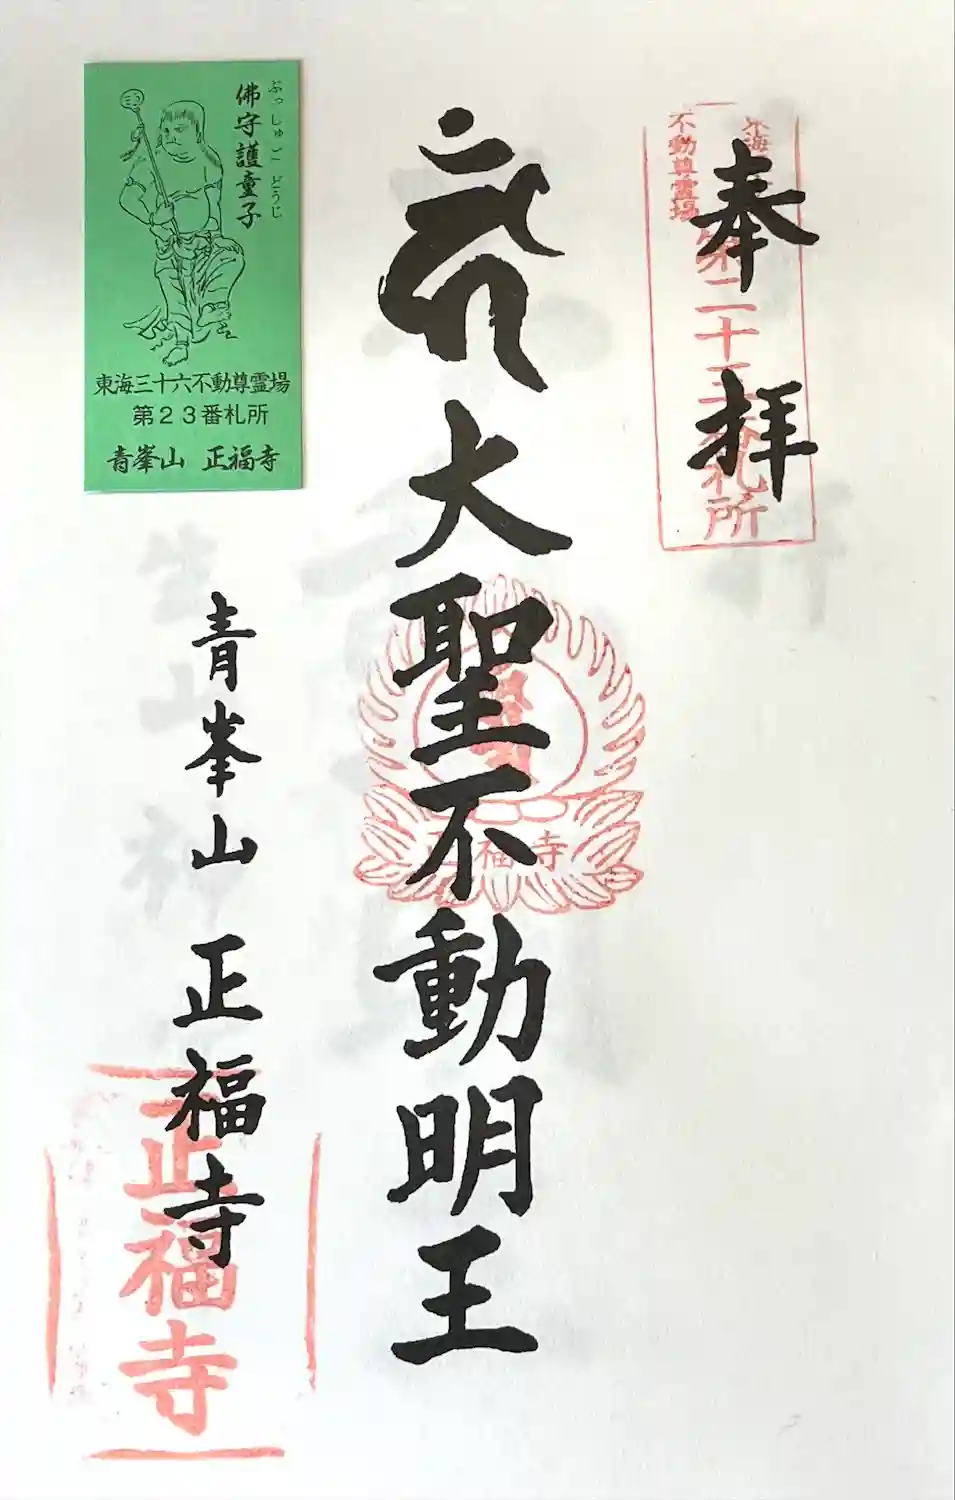 奉拝
東海
不動尊霊場
第二十三番札所
大聖不動明王
正福寺
青峯山 正福寺
正福寺
佛守護童子
ぶっしゅごどうじ
東海三十六不動尊霊場
第23番札所
青峯山 正福寺